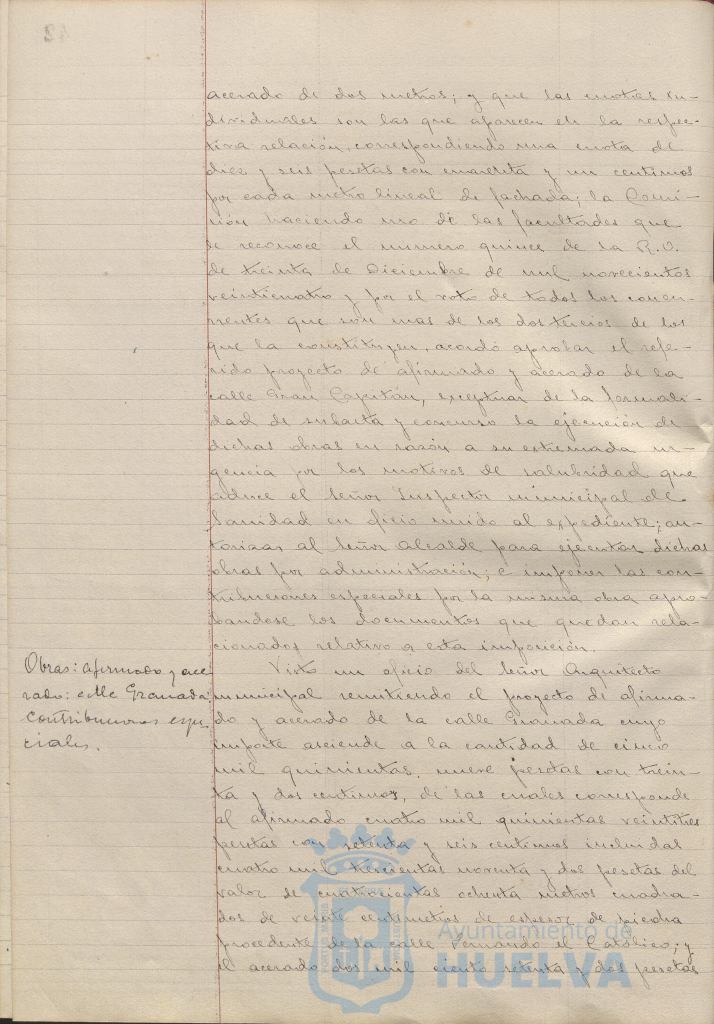 acerado de dos metros; y que las cuotas in-
dividuales son las que aparecen en la respec-
tiva relación, correspondiendo una cuota de
diez y seis pesetas con cuarenta y un centimos
por cada metro lineal de fachada; la Comi-
sión haciendo uso de las facultades que
le reconoce el numero quince de la R.O.
de treinta de Diciembre de mil novecientos
veinticuatro y por el voto de todos los concu-
rrentes que son mas de los dos tercios de los
que la constituyen, acordó aprobar el refe-
rido proyecto de afirmado y acerado de la
calle Gran Capitán, exceptuar de la formali-
dad de subasta y concurso la ejecución de
dichas obras en razón a su extremada ur-
gencia por los motivos de salubridad que
aduce el Señor Inspector municipal de
Sanidad en oficio unido al expediente; au-
torizar al Señor Alcalde para ejecutar dichas
obras por administración; e imponer las con-
tribuciones especiales por la misma obra apro-
bandose los documentos que quedan rela-
cionados relativo a esta imposición.
Obras: afirmado y ace
rado: calle Granada:
contribuciones espe
ciales.
Visto un oficio del Señor Arquitecto
municipal remitiendo el proyecto de afirma-
do y acerado de la calle Granada cuyo
importe asciende a la cantidad de cinco
mil quinientas nueve pesetas con trein-
ta y dos centimos, de las cuales corresponde
al afirmado cuatro mil quinientas veintitres
pesetas con setenta y seis centimos incluidas
cuatro mil trescientas noventa y dos pesetas del
valor de cuatrocientas ochenta metros cuadra-
dos de veinte centimetros de espesor de piedra
procedente de la calle Fernando el Católico; y
el acerado dos mil ciento setenta y dos pesetas
Ayuntamiento de
HUELVA